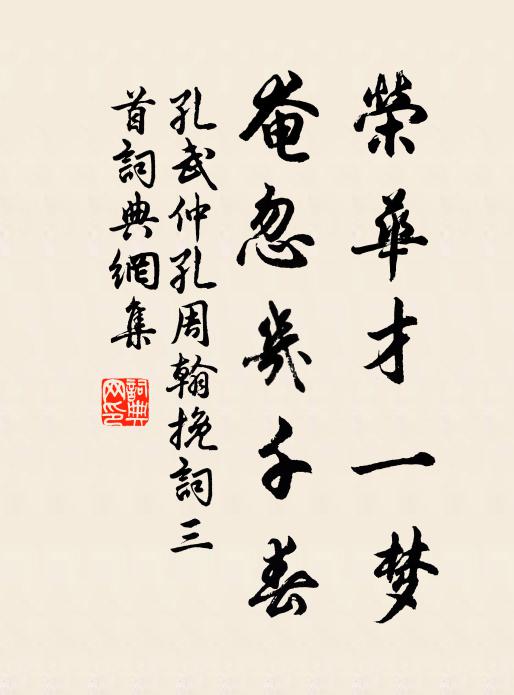 榮華才一梦
奄忽幾千春
孔武仲孔周翰挽詞三
首詞典網集
詞典
网印